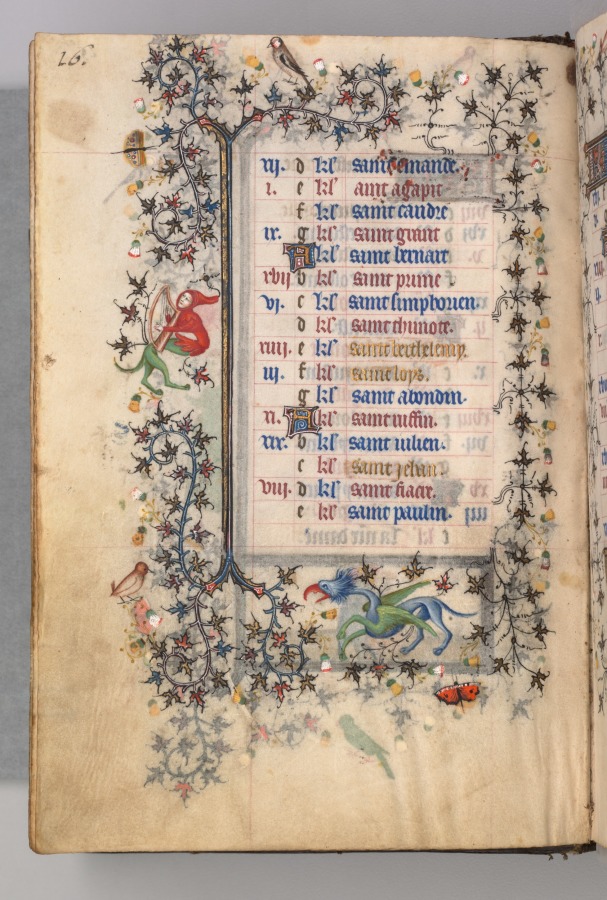 26.
xvj. d kl' saint emande.
i. e kl' aint agapit
f kl' saint candre
ix. g kl' saint
A kl' saint bernart.
xvij b kl' saint prime
vj. c kl' saint simphorien.
d kl' saint thimote.
xiiij. e kl' saint berthelemy.
iij. f kl' saint loys.
g kl' saint abondin.
xi. A kl' saint ruffin.
xix. b kl' saint iulien.
c kl' saint jehan.
viij. d kl' saint fiacre.
e kl' saint paulin.